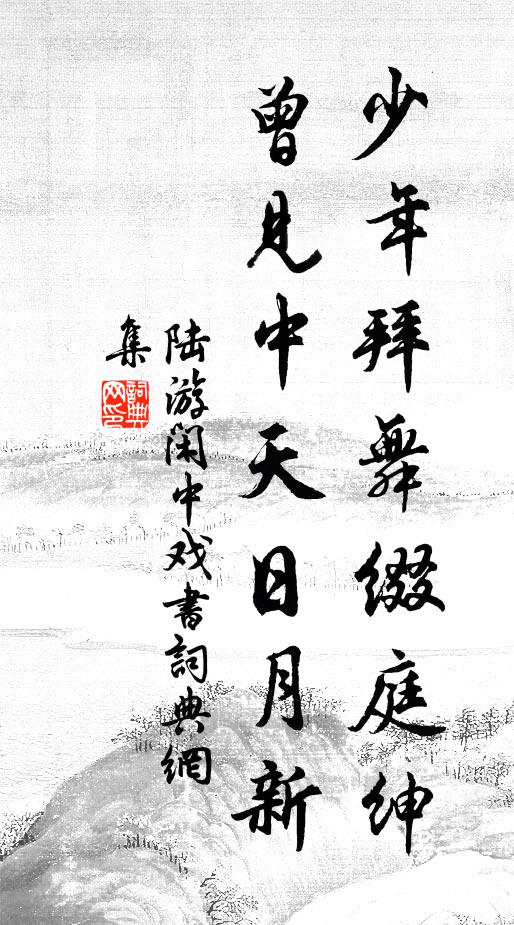 少年拜舞缀庭绅
曾見中天日月新
陆游闲中戏書詞典網
集
詞典
网印